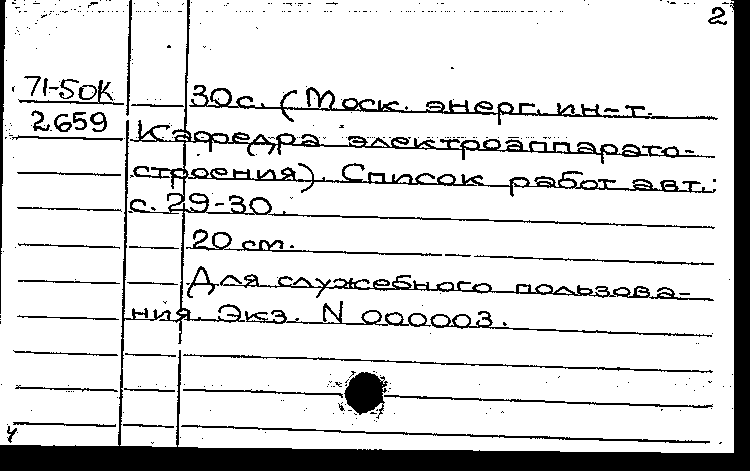 2
71-50К
2659
30с. (Моск. энерг. ин-т.
Кафедра электроаппарато-
строения). Список работ авт.:
с. 29-30.
20 см.
Для служебного пользова-
ния. Экз. N 000003.